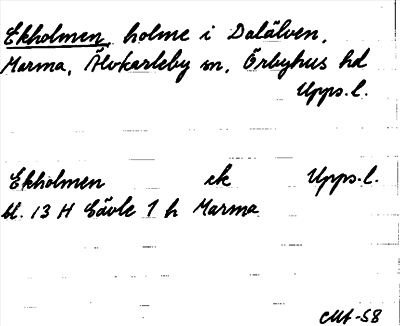 Ekholmen, holme i Dalälven,
Marma, Älvkarleby sn, Örbyhus hd
Upps.l.
Ekholmen ek Upps.l.
bl. 13 H Gävle 1 h Marma
CMA-58